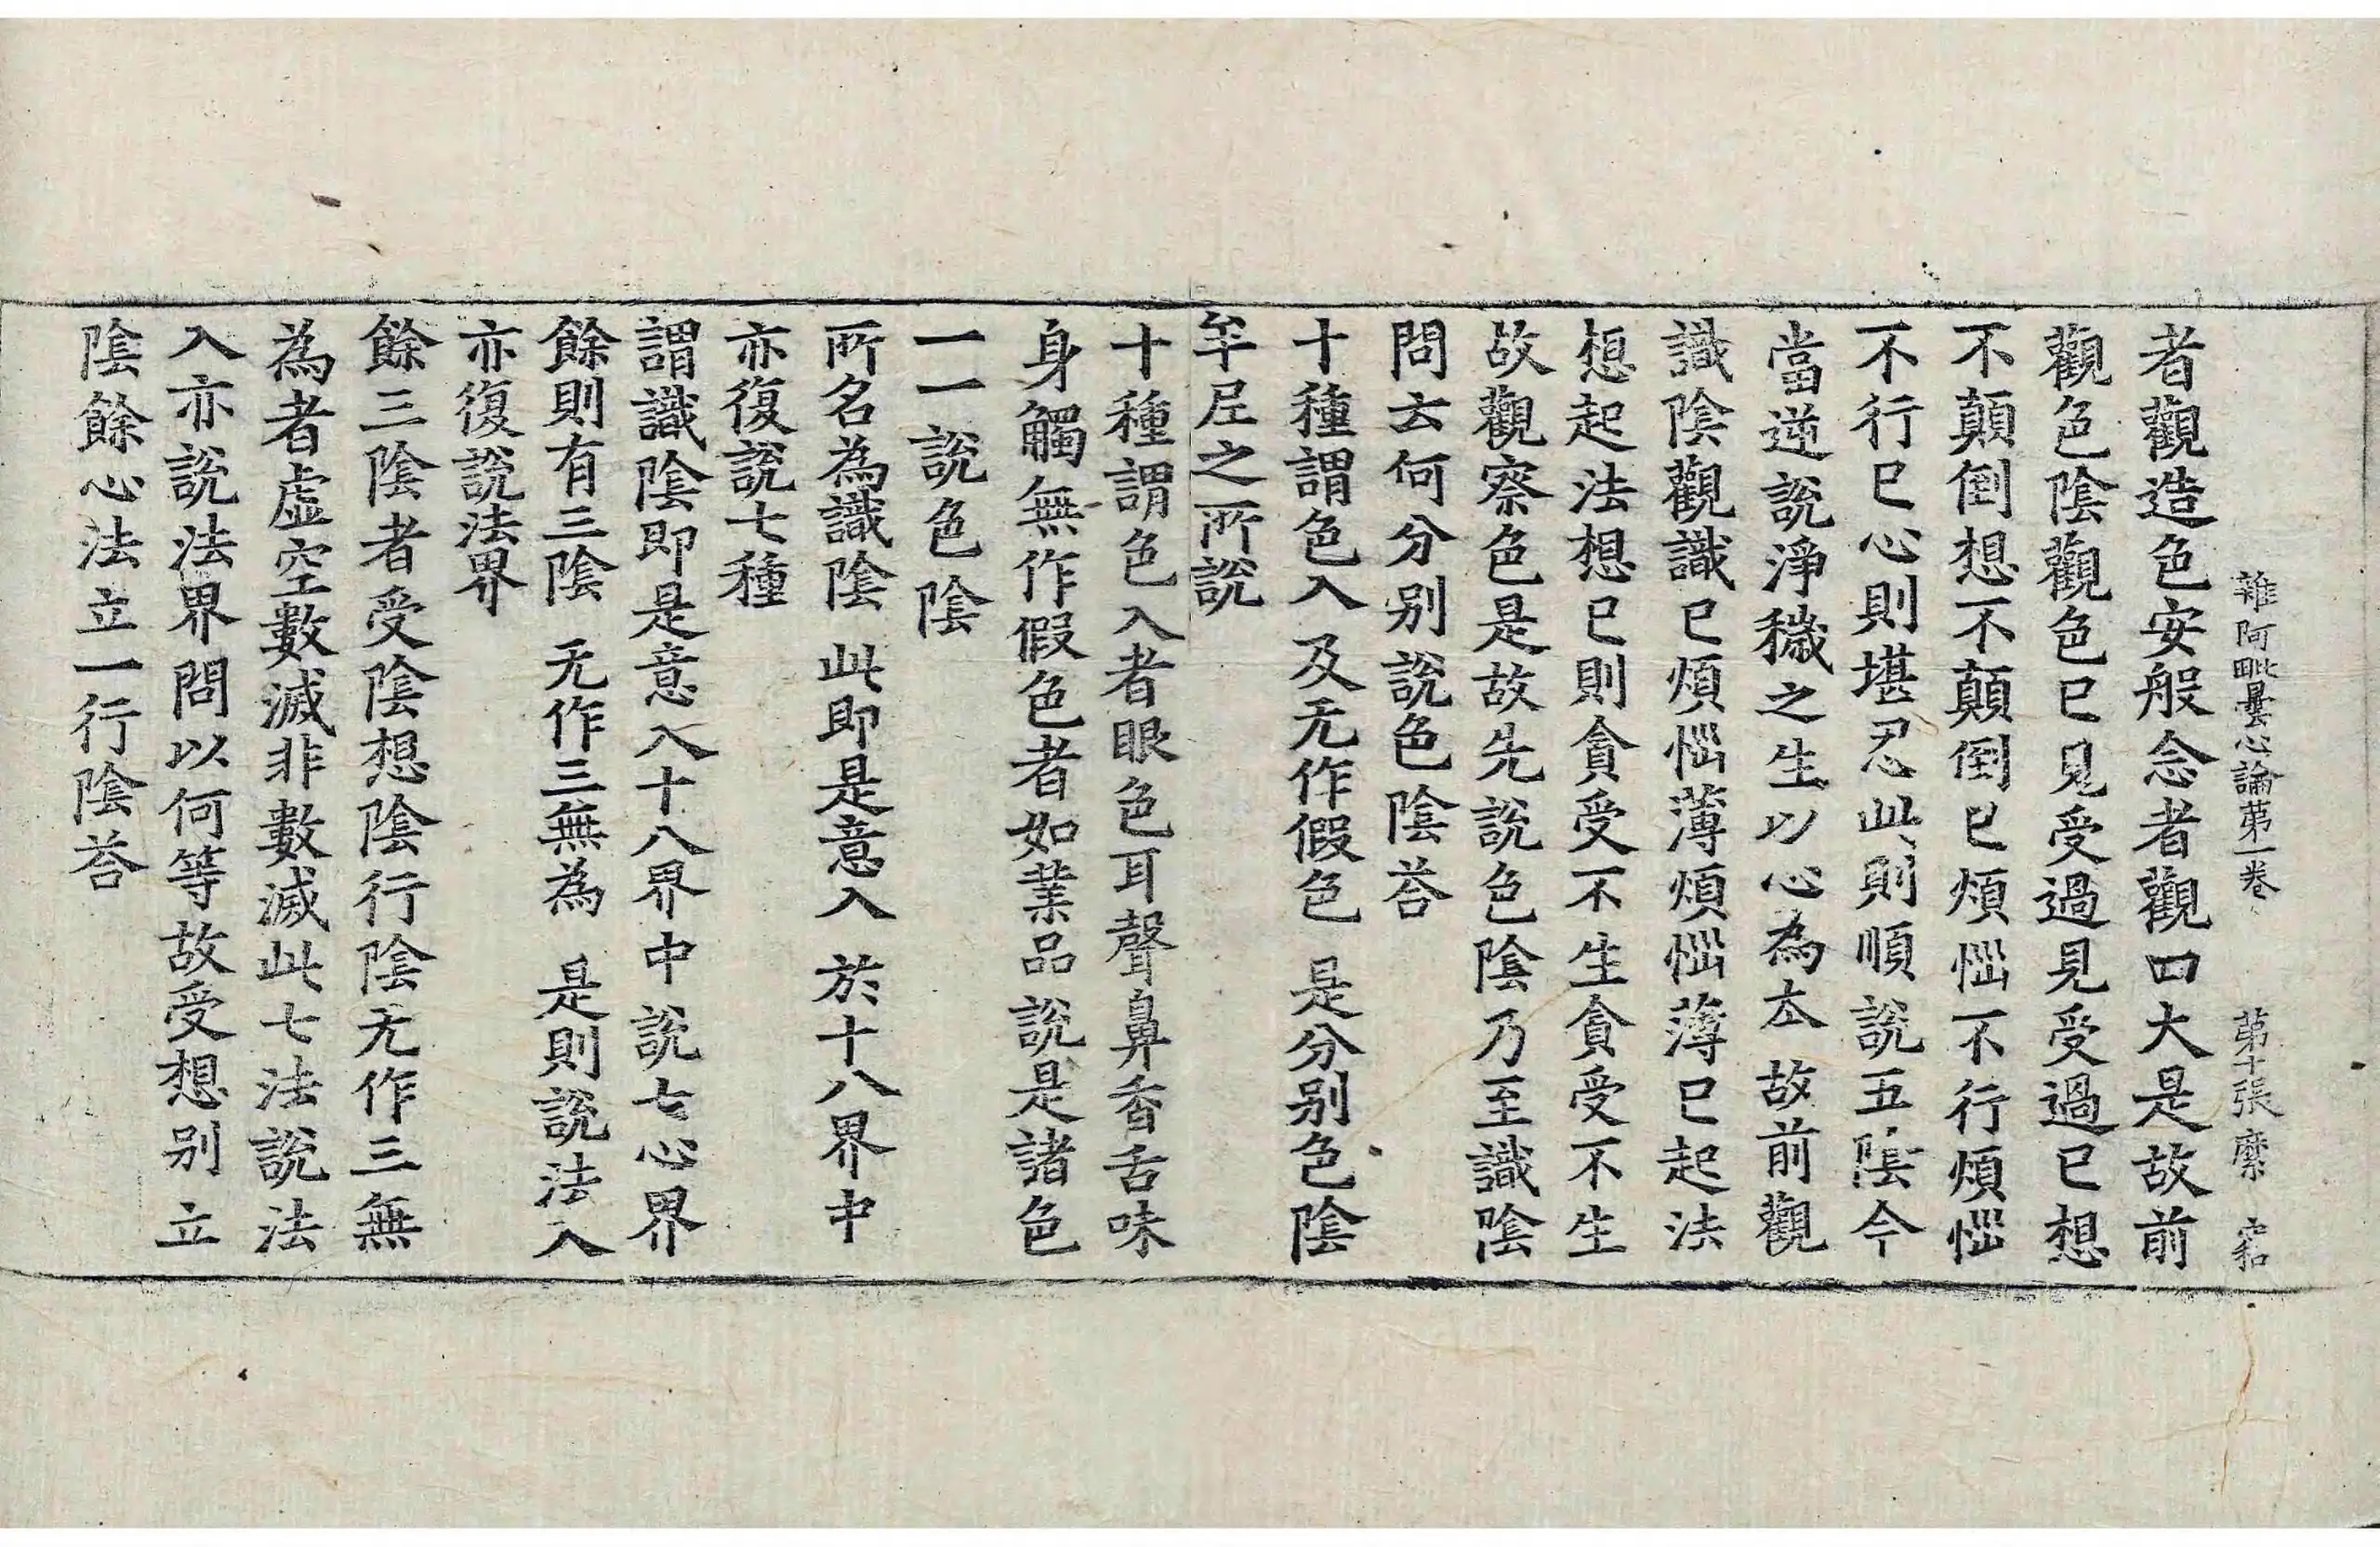 雜阿毗曇心論苐一卷 苐十張 縻 宓
者觀造色安般念者觀四大是故前
觀色陰觀色已見受過見受過已想
不顛倒想不顛倒已煩惱不行煩惱
不行已心則堪忍此則順說五陰今
當逆說淨穢之生以心為夲故前觀
識陰觀識已煩惱薄煩惱薄已起法
想起法想已則貪受不生貪受不生
故觀察色是故先說色陰乃至識陰
問云何分别說色陰荅
十種謂色入 及无作假色 是分别色陰
牟尼之所說
十種謂色入者眼色耳聲鼻香舌味
身觸無作假色者如業品說是諸色
一一說色陰
所名為識陰 此即是意入 於十八界中
亦復說七種
謂識陰即是意入十八界中說七心界
餘則有三陰 无作三無為 是則說法入
亦復說法界
餘三陰者受陰想陰行陰无作三無
為者虛空數滅非數滅此七法說法
入亦說法界問以何等故受想别立
陰餘心法立一行陰荅